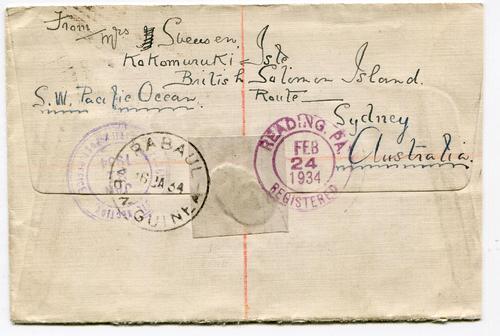 From
Mrs J Svensen.
Kokomuruki Isle
British Solomon Island.
S.W. Pacific Ocean. Route
Sydney
Australia.
RABAUL
16 JA 34
GUINEA
READING, PA.
FEB
24
1934
REGISTERED